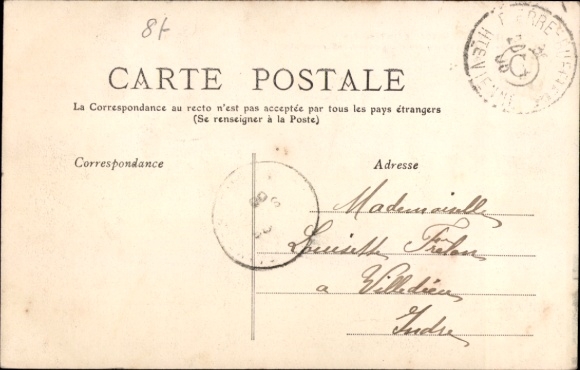 8f
CARTE POSTALE
La Correspondance au recto n'est pas acceptée par tous les pays étrangers
(Se renseigner à la Poste)
Correspondance
Adresse
Mademoiselle
Louisette Frélon
a Villedieu
Indre